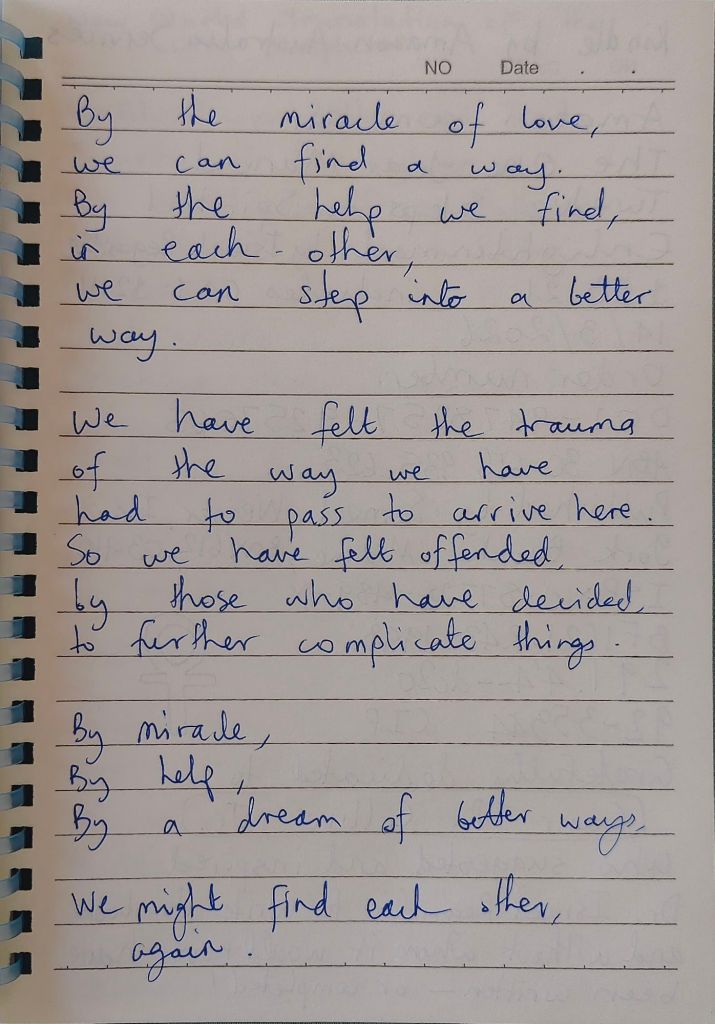 NO Date . .
By the miracle of love,
we can find a way.
By the help we find,
in each-other,
we can step into a better
way.
We have felt the trauma
of the way we have
had to pass to arrive here.
So we have felt offended,
by those who have decided,
to further complicate things.
By miracle,
By help,
By a dream of better ways,
We might find each other,
again.